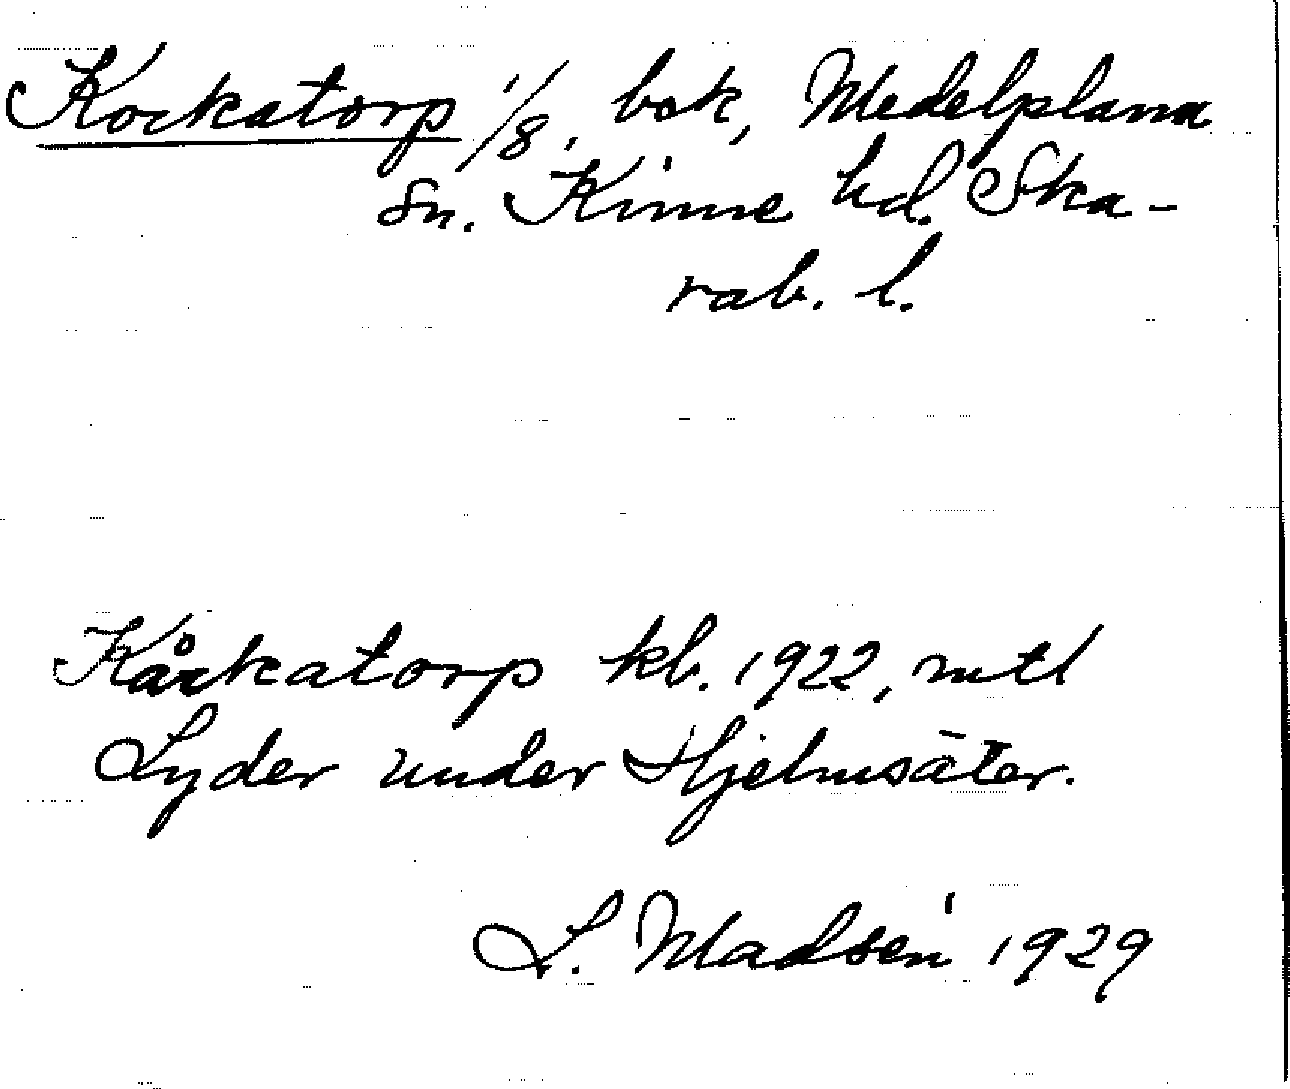 Kockatorp 1/8, bok, Medelplana
Sn. Kinne hd. Ska-
rab. l.
Kårkatorp kb. 1922, mtl
Lyder under Hjelmsäter.
L. Madsén 1929